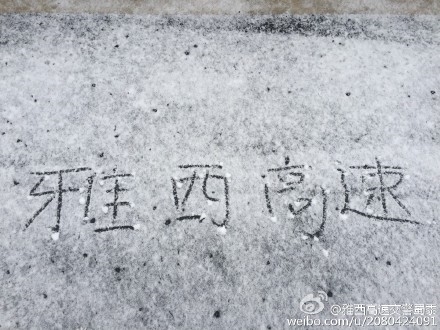 雅西高速
@雅西高速交警蜀黍
weibo.com/u/2080424091